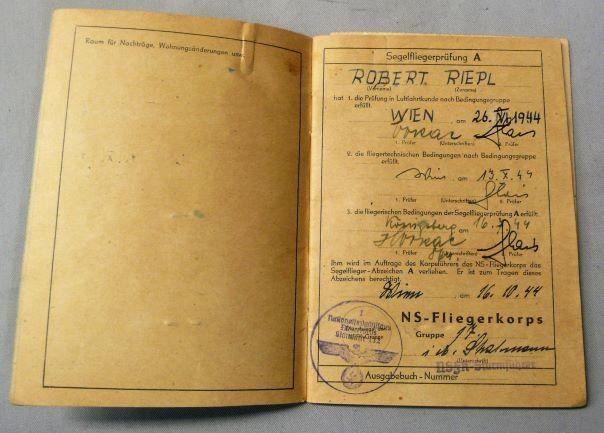 Raum für Nachträge, Wohnungsänderungen usw.
Segelfliegerprüfung A
ROBERT RIEPL
(Vorname) (Zuname)
hat 1. die Prüfung in Luftfahrtkunde nach Bedingungsgruppe
erfüllt.
WIEN, am 26. 1944
1. Prüfer (Unterschriften) 2. Prüfer
2. die fliegertechnischen Bedingungen nach Bedingungsgruppe
erfüllt.
Wien, am 13.X.44
1. Prüfer (Unterschriften) 2. Prüfer
3. die fliegerischen Bedingungen der Segelfliegerprüfung A erfüllt.
am 16. 44
1. Prüfer (Unterschriften) 2. Prüfer
Ihm wird im Auftrage des Korpsführers des NS-Fliegerkorps das
Segelflieger-Abzeichen A verliehen. Er ist zum Tragen dieses
Abzeichens berechtigt.
Wien, am 16.10.44
NS-Fliegerkorps
Gruppe 17
(Unterschrift)
NSFK-Sturmführer
Ausgabebuch-Nummer